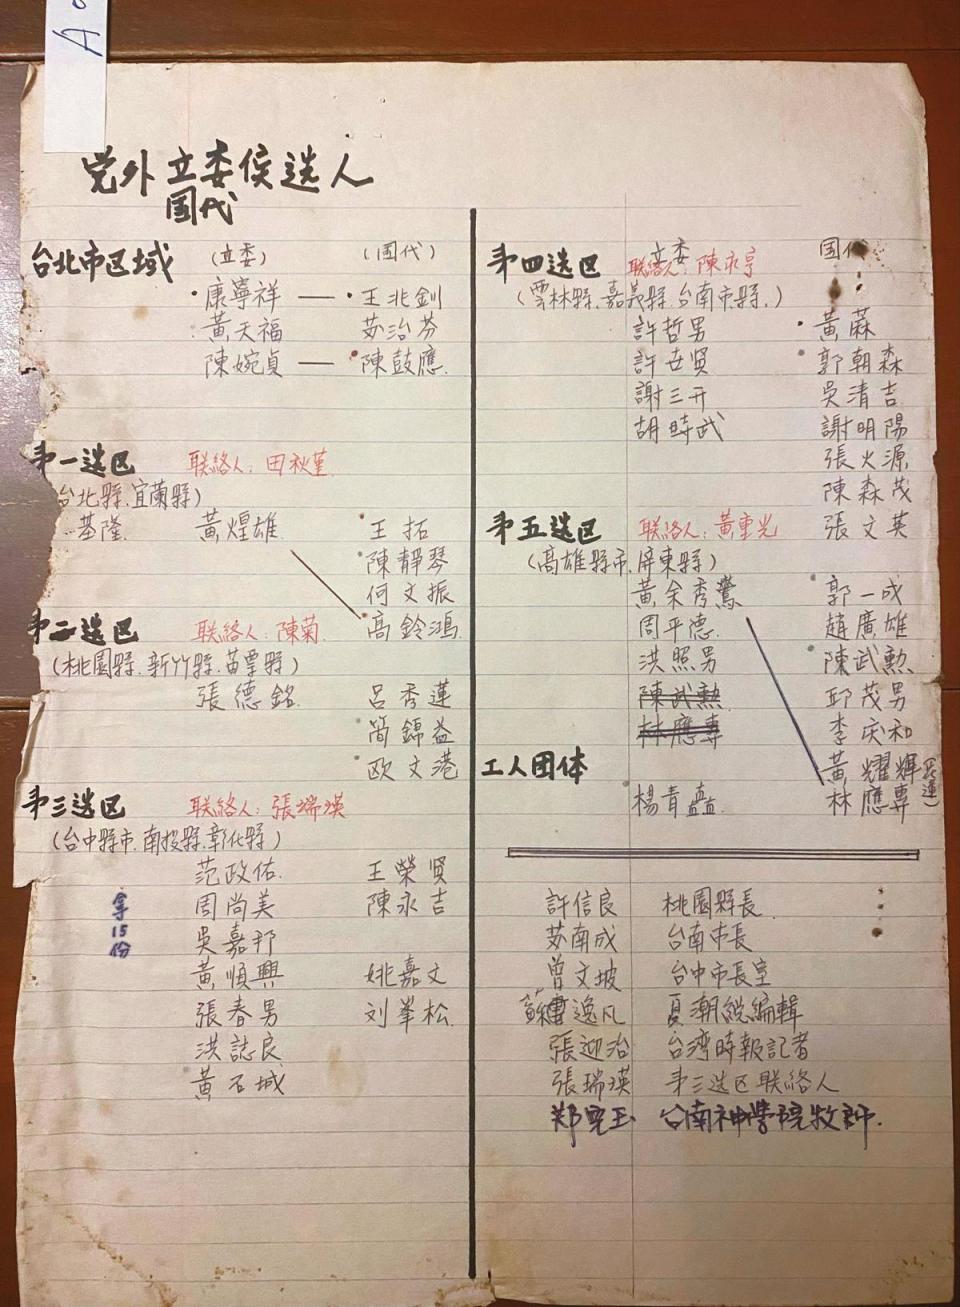 A
党外立委侯选人
国代
台北市区域 (立委) (国代)
康寧祥 — 王兆釧
黃天福 茹治芬
陳婉貞 — 陳鼓應
第一选区 联絡人:田秋堇
台北縣.宜蘭縣)
基隆. 黃煌雄 王拓
陳靜琴
何文振
高鈴鴻
第二选区 联絡人:陳菊
(桃園縣.新竹縣.苗栗縣)
張德銘 呂秀蓮
簡錦益
欧文港
第三选区 联絡人:張瑞瑛
(台中縣市.南投縣.彰化縣)
范政佑. 王榮贤
周尚美 陳永吉
吳嘉邦
黃順興 姚嘉文
張春男 刘峯松
洪誌良
黃石城
拿15份
第四选区 立委 联絡人:陳永亨 国代
(雲林縣.嘉義縣.台南市縣.)
許哲男 黃蔴
許世贤 郭朝森
謝三升 吳清吉
胡時武 謝明陽
張火源
陳森茂
第五选区 联絡人:黃重光 張文英
(高雄縣市.屏東縣)
黃余秀鸞 郭一成
周平德. 趙廣雄
洪照男 陳武勲
陳武勲 邱茂男
林應專 李庆和
工人团体 黃耀輝
楊青矗 林應專
許信良 桃園縣長
茹南成 台南市長
曾文坡 台中市長室
蘇逸凡 夏潮総編輯
張迎治 台湾時報記者
張瑞瑛 第三选区联絡人
郑児玉 台南神学院牧師.